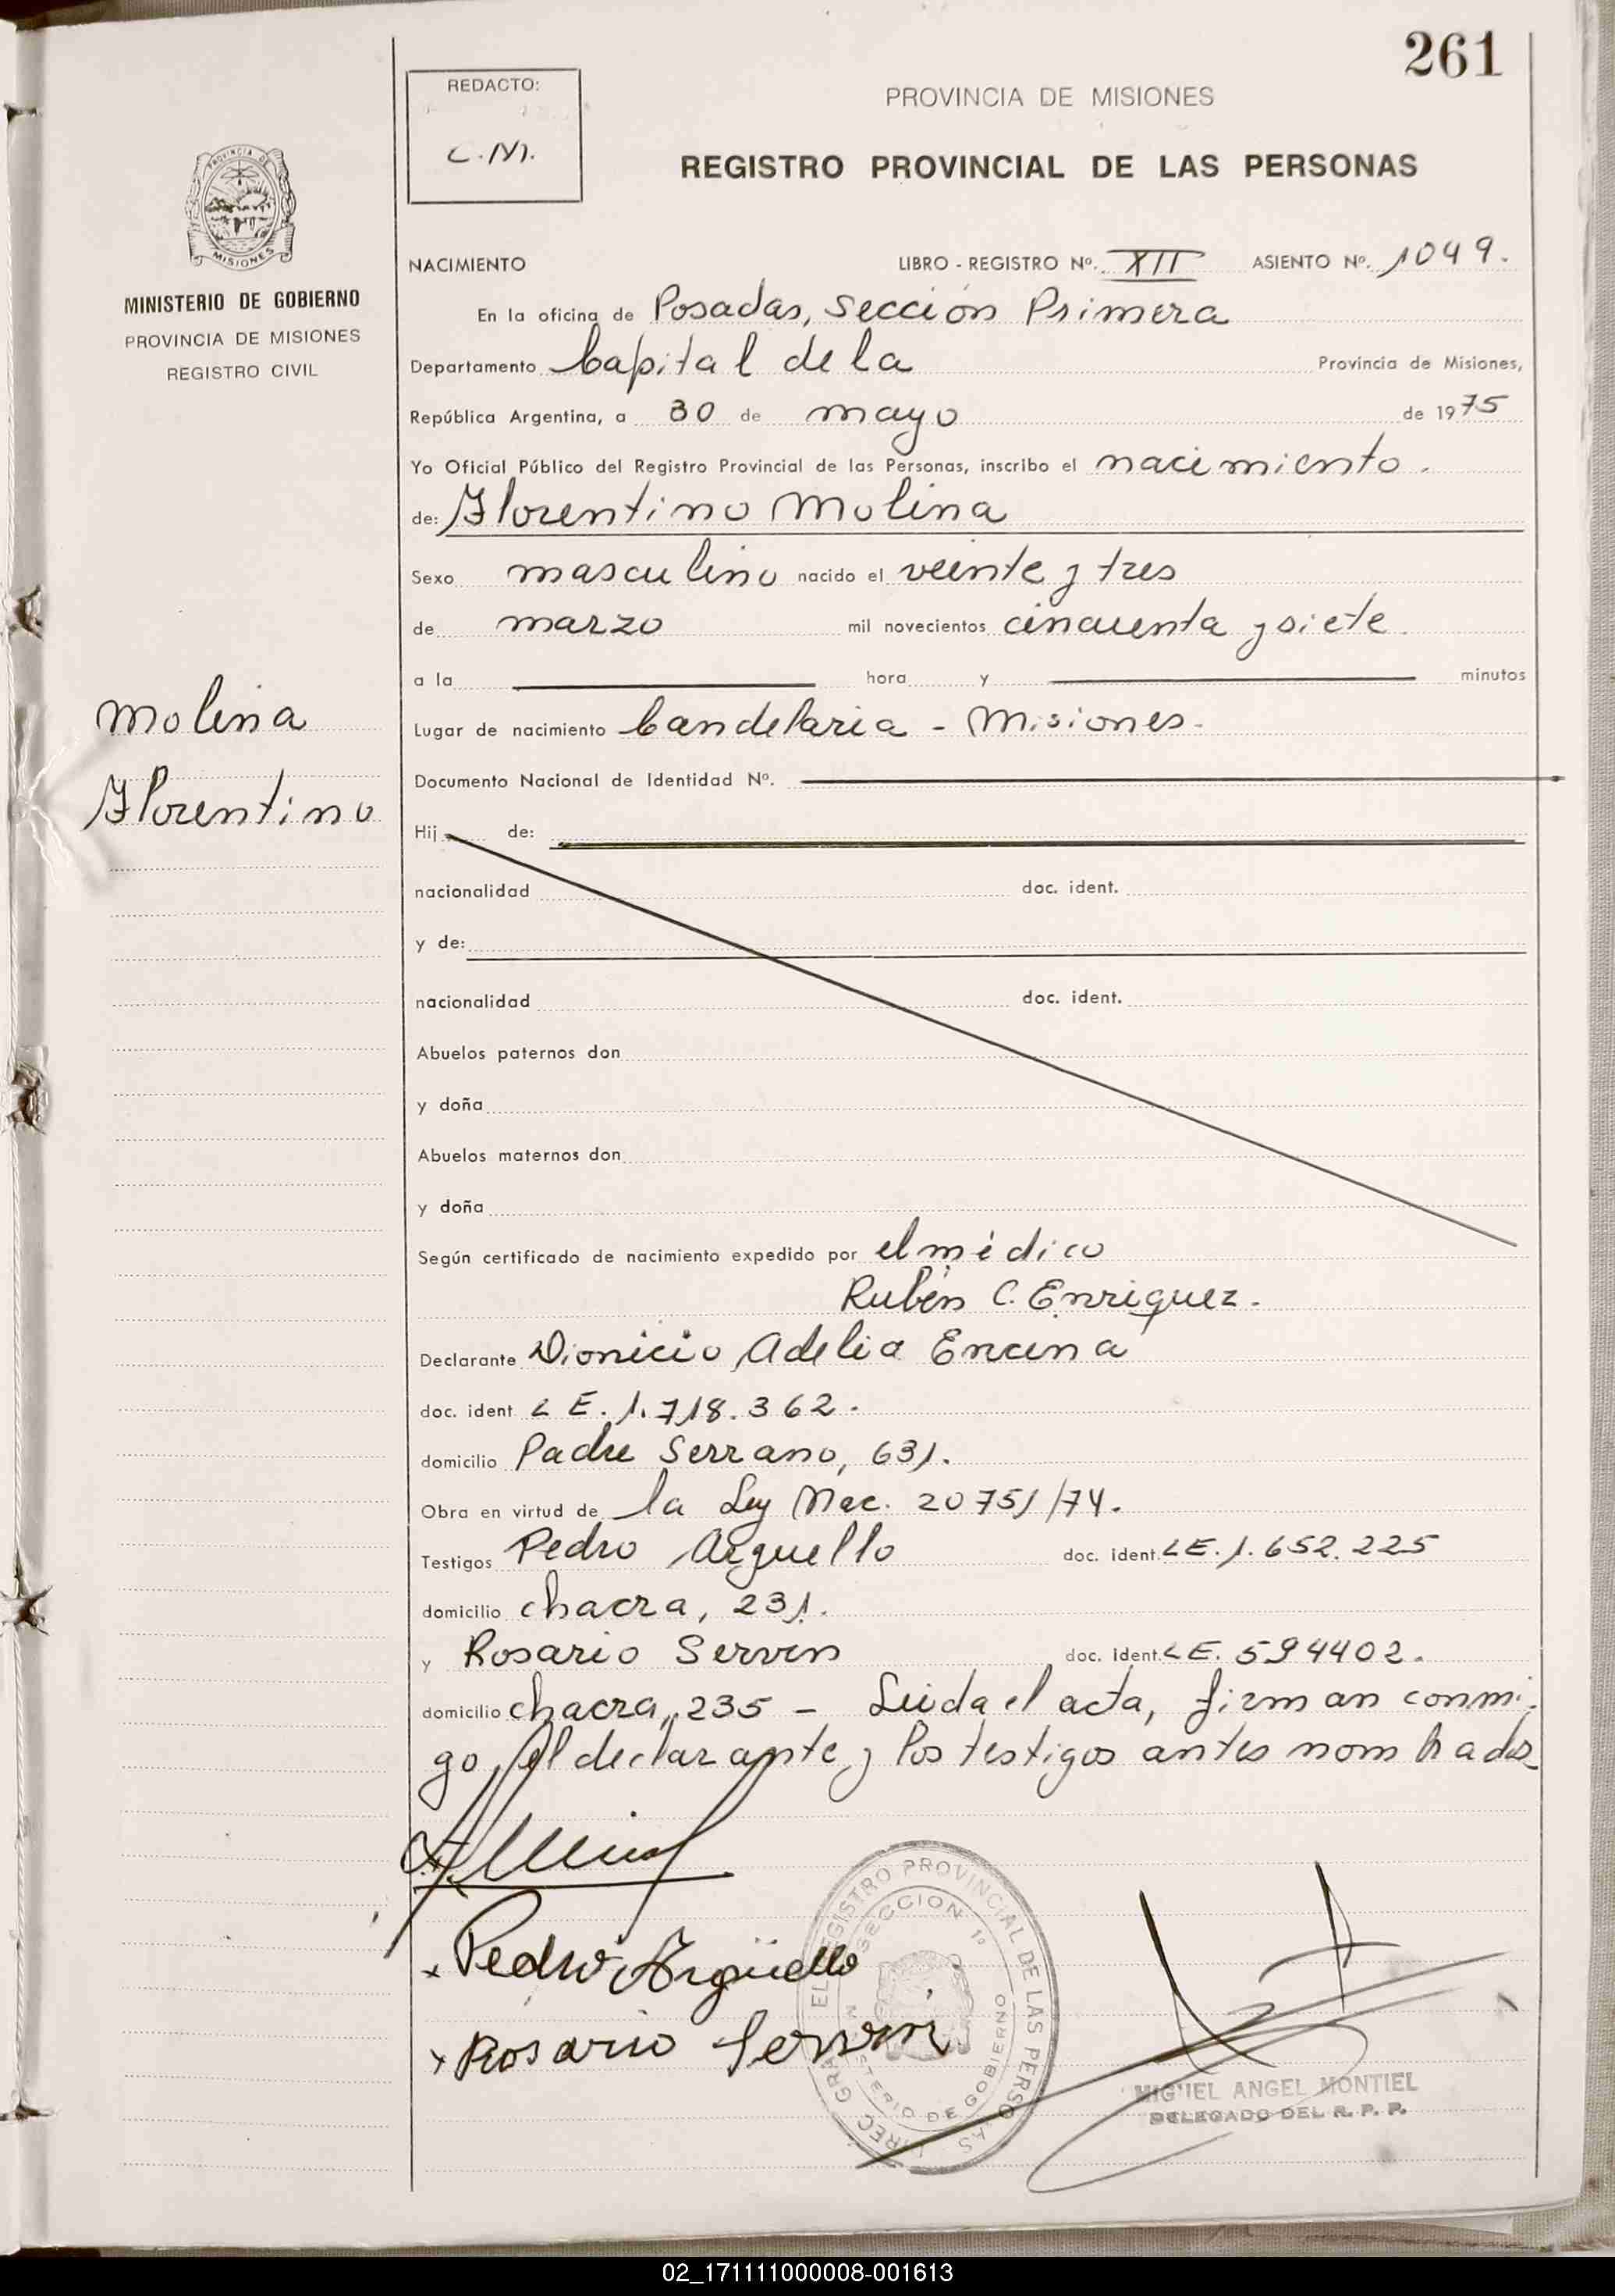 261
REDACTO:
C.M.
PROVINCIA DE MISIONES
REGISTRO PROVINCIAL DE LAS PERSONAS
PROVINCIA DE
MISIONES
MINISTERIO DE GOBIERNO
PROVINCIA DE MISIONES
REGISTRO CIVIL
NACIMIENTO LIBRO - REGISTRO Nº. XII ASIENTO Nº. 1049.
En la oficina de Posadas, Sección Primera
Departamento Capital de la Provincia de Misiones,
República Argentina, a 30 de mayo de 1975
Yo Oficial Público del Registro Provincial de las Personas, inscribo el nacimiento.
de: Florentino Molina
Sexo masculino nacido el veinte y tres
de marzo mil novecientos cincuenta y siete
a la hora y minutos
Molina
Lugar de nacimiento Candelaria - Misiones.
Documento Nacional de Identidad Nº.
Florentino
Hij de:
nacionalidad doc. ident.
y de:
nacionalidad doc. ident.
Abuelos paternos don
y doña
Abuelos maternos don
y doña
Según certificado de nacimiento expedido por el médico
Rubén C. Enriquez.
Declarante Dionicio Adelio Encina
doc. ident L E. 1.718.362.
domicilio Padre Serrano, 631.
Obra en virtud de la Ley Nac. 20751/74.
Testigos Pedro Arguello doc. ident. LE. 1.652.225
domicilio chacra, 231.
y Rosario Servin doc. ident. LE. 594402.
domicilio chacra, 235 - Leida el acta, firman conmi-
go, el declarante y los testigos antes nombrados
x Pedro Argüello
x Rosario Servin
REGISTRO PROVINCIAL DE LAS PERSONAS
SECCION 1º
DE GOBIERNO
MIGUEL ANGEL MONTIEL
DELEGADO DEL R. P. P.
02_171111000008-001613